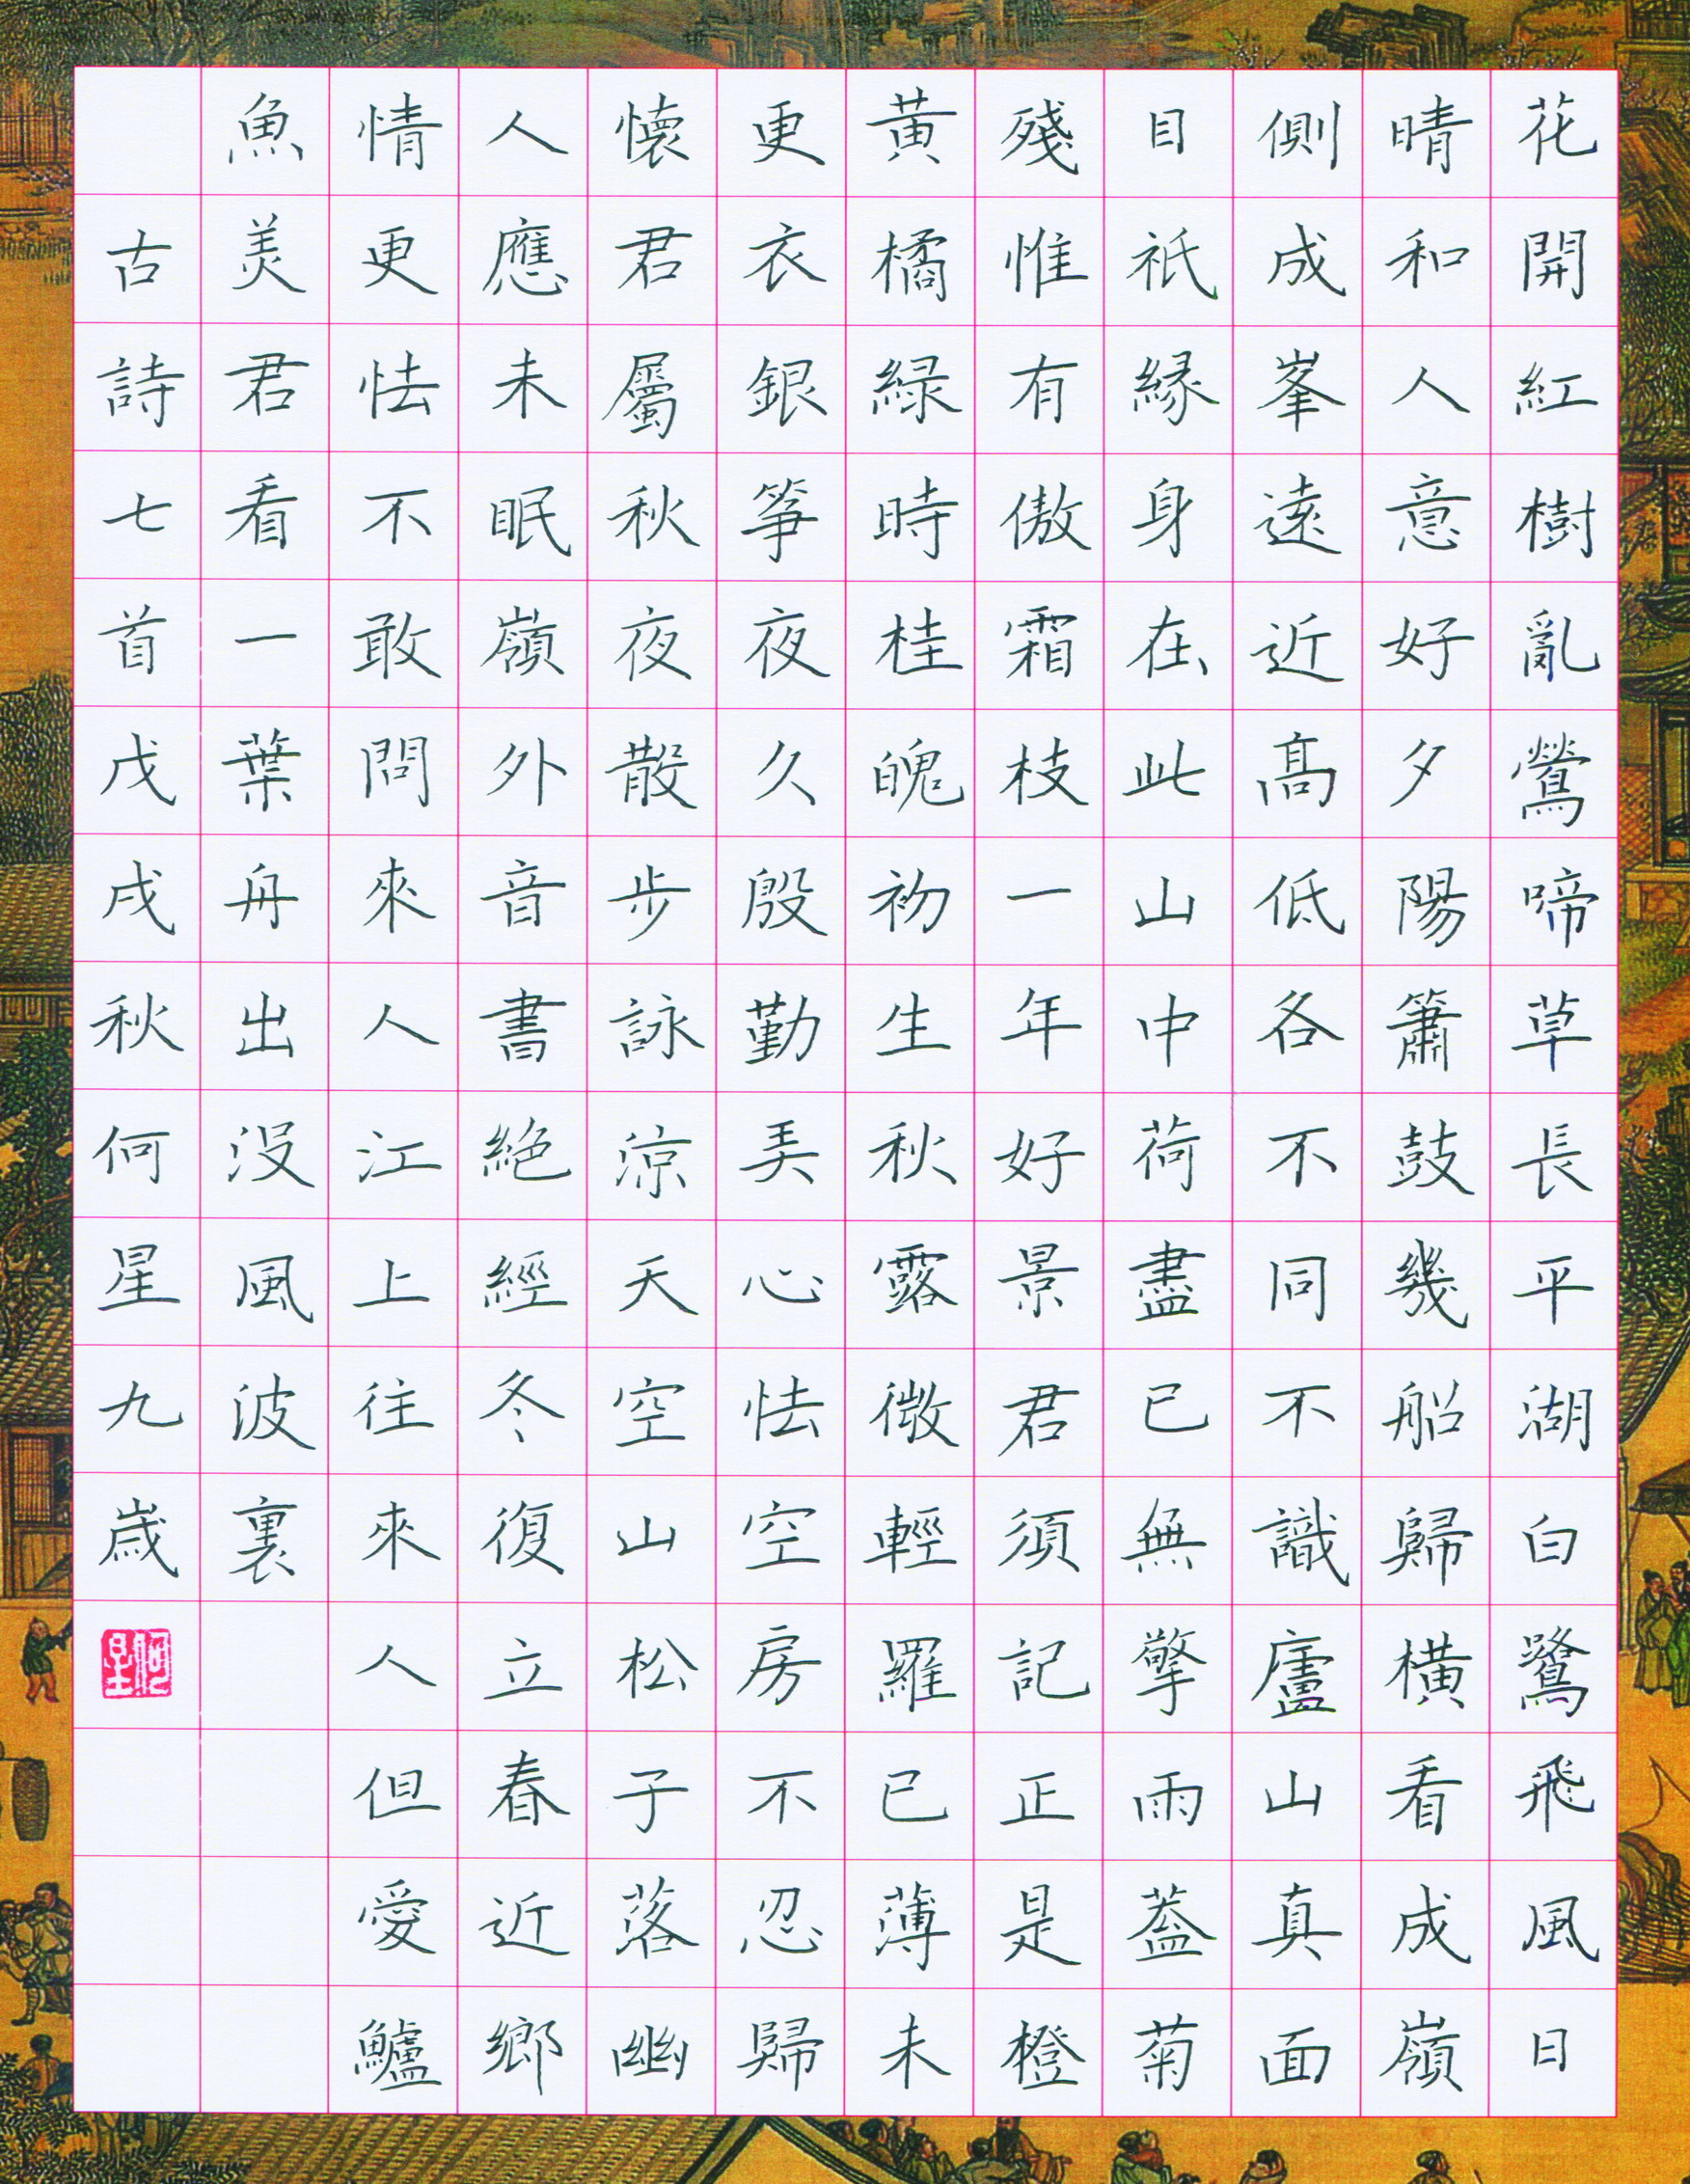 花開紅樹亂鶯啼草長平湖白鷺飛風日
晴和人意好夕陽簫鼓幾船歸橫看成嶺
側成峯遠近高低各不同不識廬山真面
目祇緣身在此山中荷盡已無擎雨蓋菊
殘惟有傲霜枝一年好景君須記正是橙
黃橘綠時桂魄初生秋露微輕羅已薄未
更衣銀箏夜久殷勤弄心怯空房不忍歸
懷君屬秋夜散步詠涼天空山松子落幽
人應未眠嶺外音書絕經冬復立春近鄉
情更怯不敢問來人江上往來人但愛鱸
魚美君看一葉舟出沒風波裏
古詩七首戊戌秋何星九歲
何星